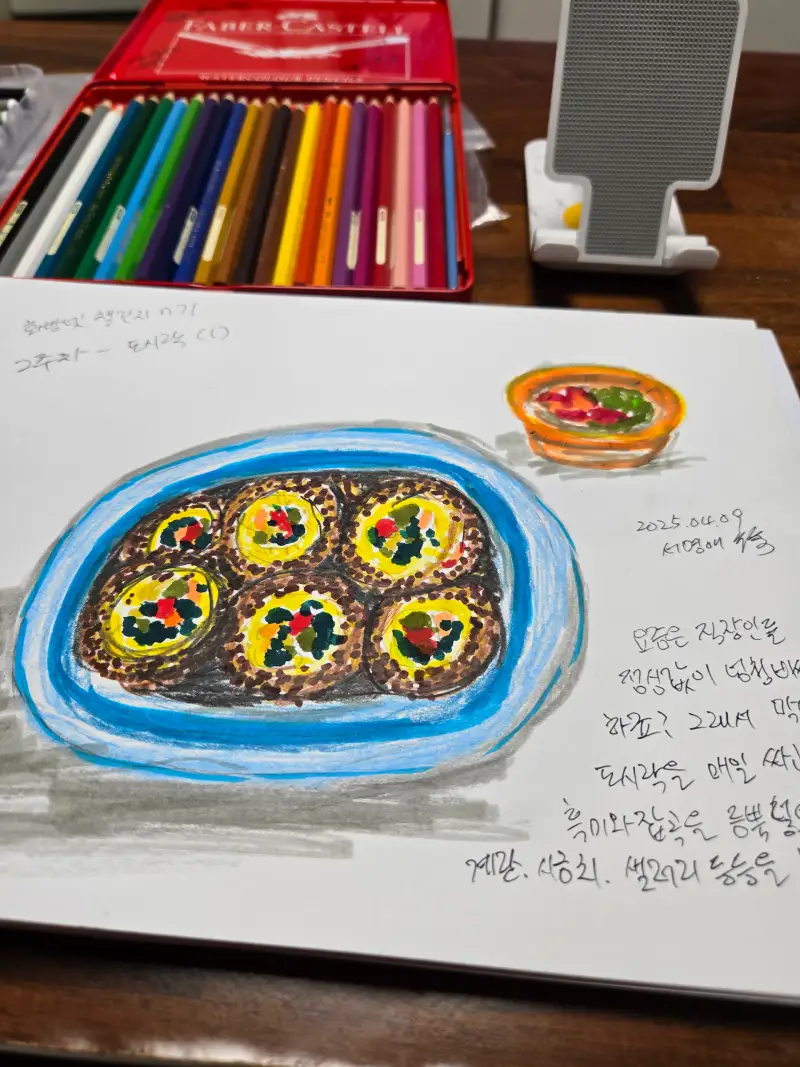 FABER-CASTELL
WATERCOLOUR PENCILS
챌린지 17기
2주차 - 도시락 (1)
2025.04.09
서명애
요즘은 직장인들
점심값이 엄청
하죠? 그래서
도시락을 매일
흑미와 잡곡을 듬뿍
계란, 시금치, 샐러리 등등을